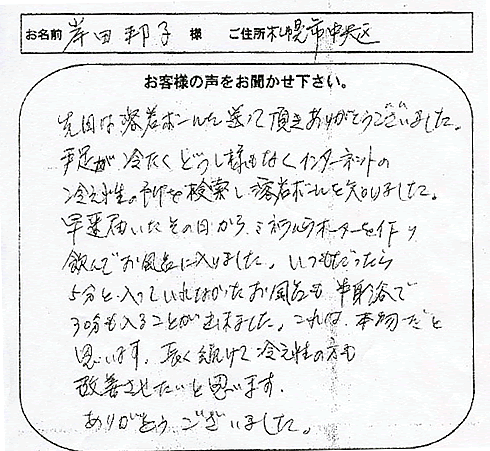 お名前 岸田邦子 様 ご住所 札幌市中央区
お客様の声をお聞かせ下さい。
先日は溶岩ボールを送って頂きありがとうございました。
手足が冷たくどうし様もなくインターネットの
冷え性の予防を検索し溶岩ボールを知りました。
早速届いたその日から、ミネラルウォーターを作り
飲んでお風呂に入りました。いつもだったら
5分と入っていれなかったお風呂も半身浴で
30分も入ることが出来ました。これは、本物だと
思います。長く続けて冷え性の方も
改善させたいと思います。
ありがとうございました。